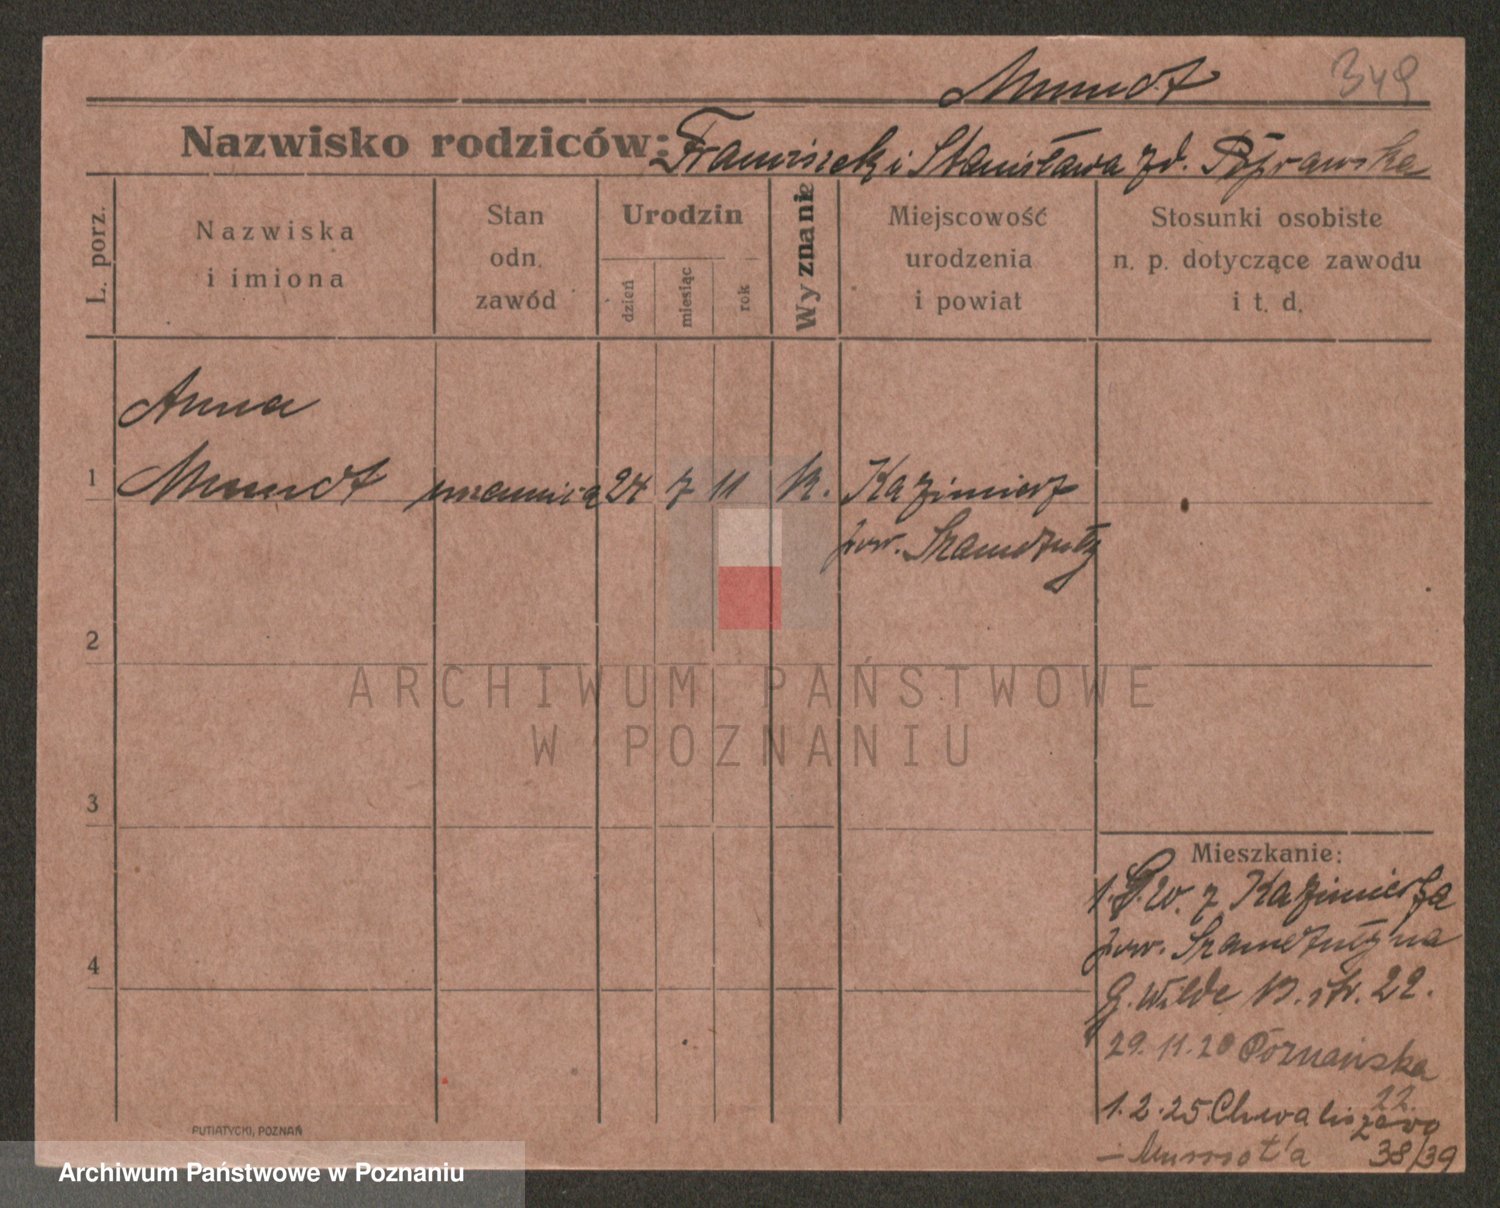 Mundt 349
Nazwisko rodziców: Franciszek i Stanisława zd. Poprawska
L. porz.
Nazwiska
i imiona
Stan
odn.
zawód
Urodzin
dzień
miesiąc
rok
Wyznanie
Miejscowość
urodzenia
i powiat
Stosunki osobiste
n. p. dotyczące zawodu
i t. d.
Anna
1 Mundt 24 7 11 k. Kazimierz
pow. Szamotuły
2
3
4
Mieszkanie:
1. z Kazimierza
pow. Szamotuły na
G. Wilde B. str. 22.
29.11.20 Poznańska
22.
1.2.25. Chwaliszewo
38/39
PUTIATYCKI, POZNAŃ
ARCHIWUM PAŃSTWOWE
W POZNANIU
Archiwum Państwowe w Poznaniu